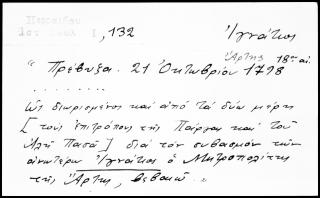 , 132
Ἰγνάτιος
Ἄρτης 18ος αἰ.
"Πρέβυζα. 21 Ὀκτωβρίου 1798
........
Ὡς διωρισμένος καὶ ἀπὸ τὰ δύω μέρη
[τοὺς ἐπιτρόπους τῆς Πάργας καὶ τοῦ
Ἀλῆ Πασᾶ] διὰ τὸν συβασμὸν τῶν
ἀνωτέρω Ἰγνάτιος ὁ Μητροπολίτης
τῆς Ἄρτης, βεβαιῶ..."